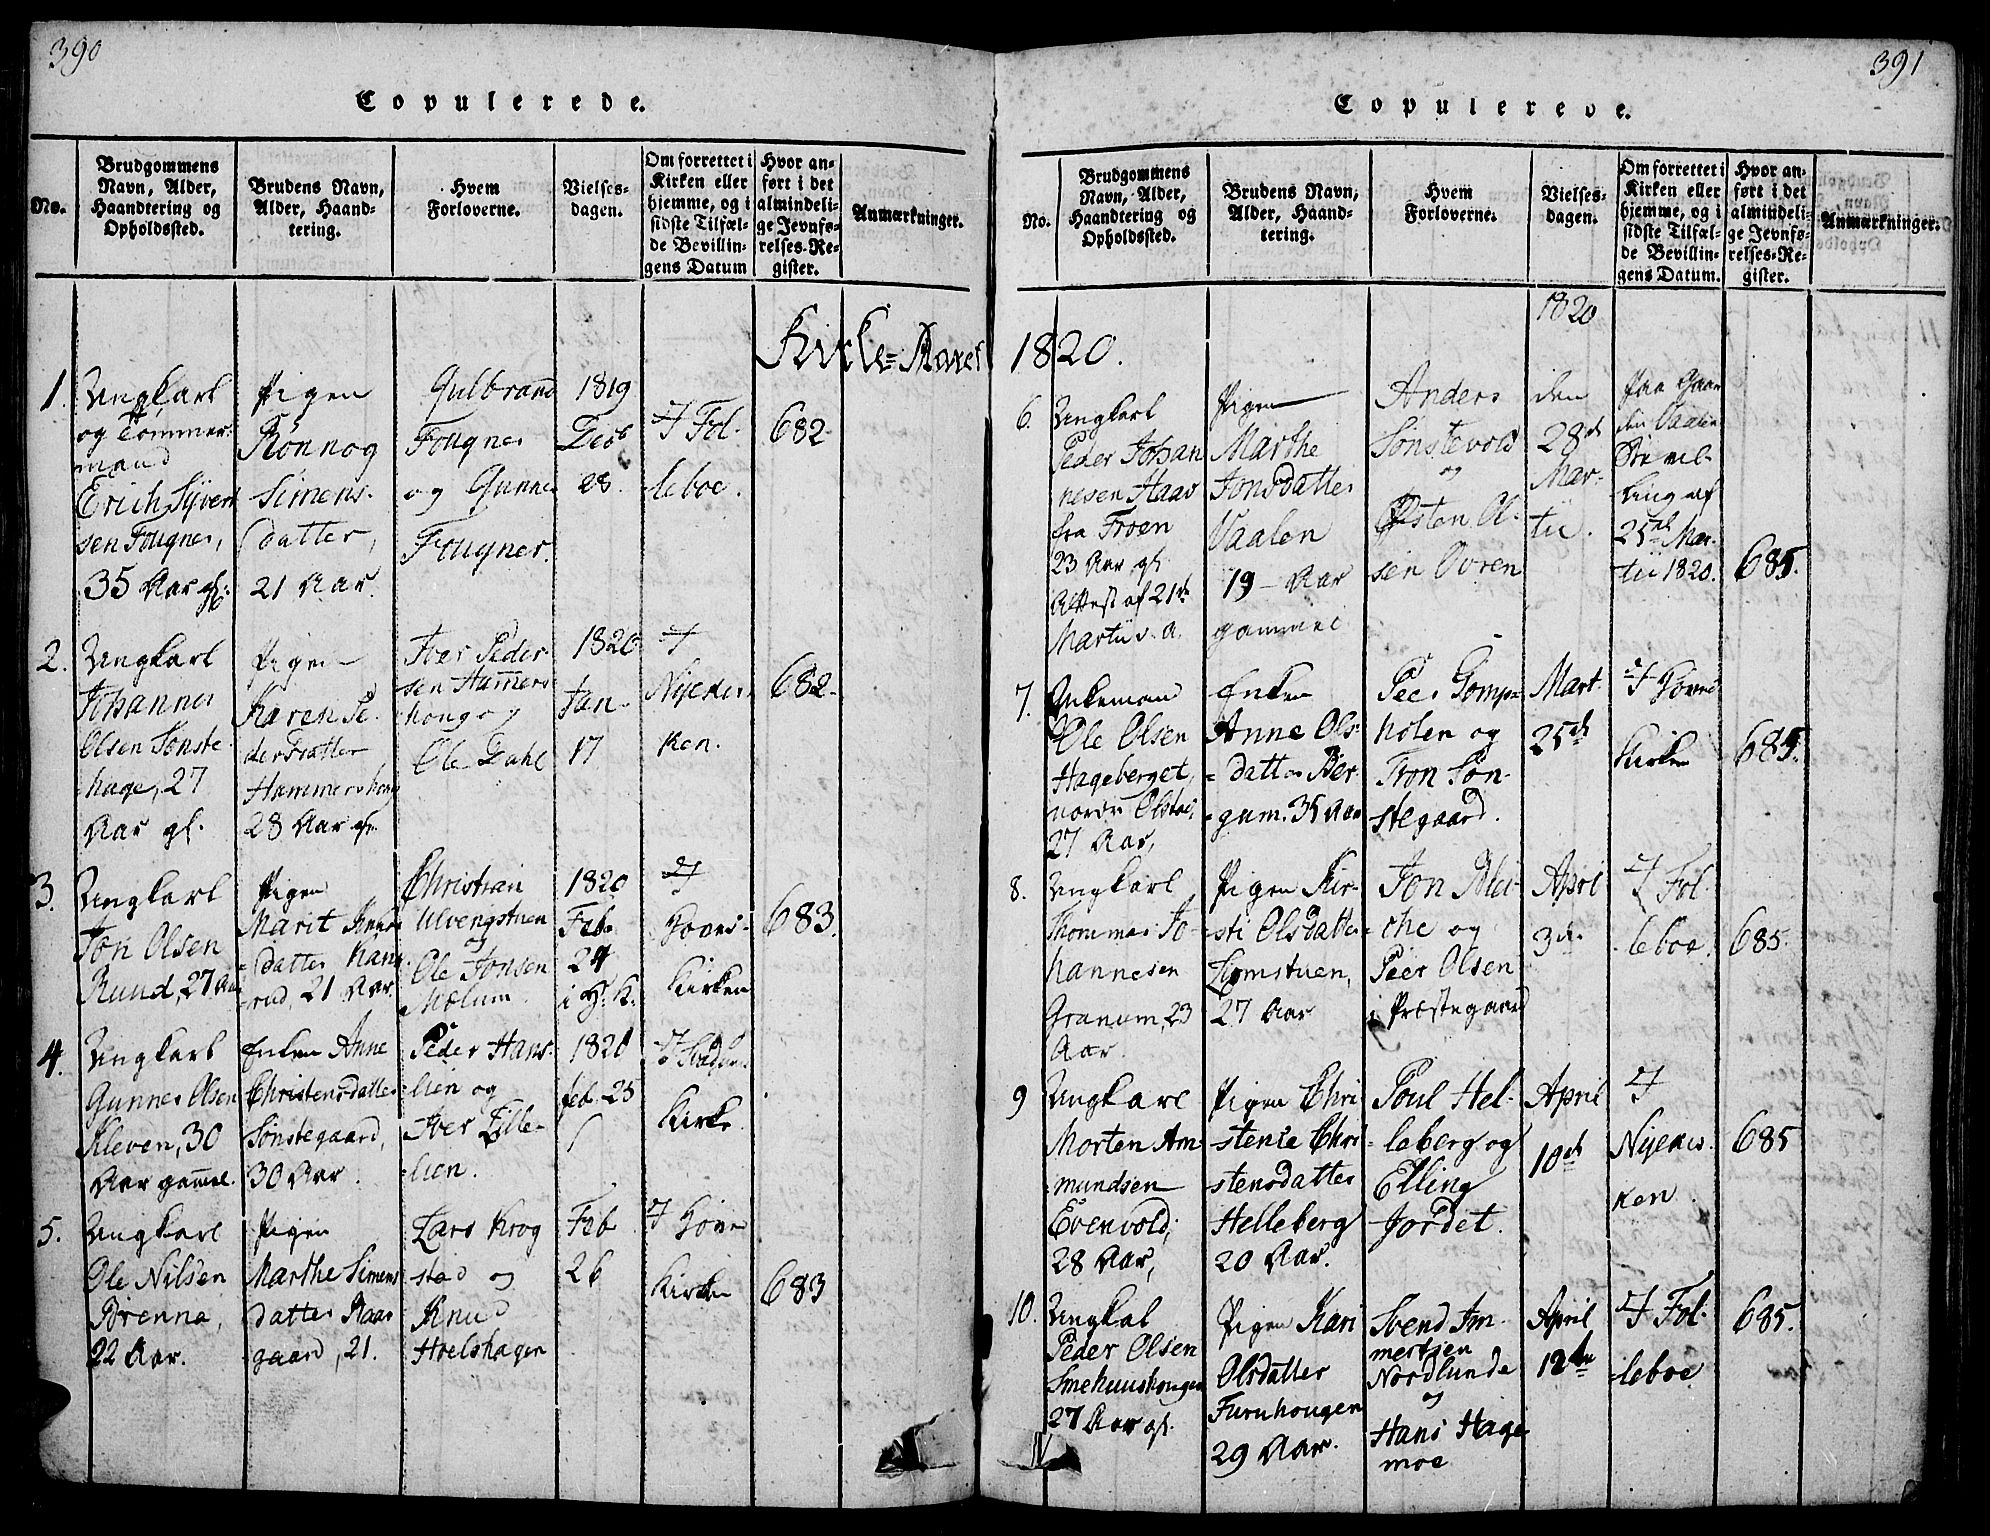 390
Copulerede.
No.
Brudgommens
Navn, Alder,
Haandtering og
Opholdssted.
Brudens Navn,
Alder, Haand-
tering.
Hvem
Forloverne.
Vielses-
dagen.
Om forrettet i
Kirken eller
hjemme, og i
sidste Tilfæl-
de Bevillin-
gens Datum
Hvor an-
ført i det
almindeli-
ge Jevnfø-
relses-Re-
gister.
Anmærkninger.
Kirke-Aaret
1.
Ungkarl
og Tømmer-
mand
Erich Syvert
sen Fougner,
35 Aar gl.
Pigen
Rønnog
Simens-
datter,
21 Aar.
Gulbrand
Fougner
og Gunner
Fougner.
1819
Decb
28.
I Fol-
leboe.
682
2.
Ungkarl
Johannes
Olsen Sønste-
hage, 27
Aar gl.
Pigen
Karen Pe-
dersdatter
Hammershoug
28 Aar gl.
Iver Peder-
sen Hamers-
houg og
Ole Dahl
1820
Jan-
17
I
Nykir-
ken.
682.
3.
Ungkarl
Jon Olsen
Ruud, 27 Aar
Pigen
Marit
datter
rud, 21 Aar.
Christian
Ulvengstuen
og
Ole Jonsen
Mælum.
1820
Feb.
24
i H. K.
I
Hoved-
Kirken
683.
4.
Ungkarl
Gunner Olsen
Kleven, 30
Aar gamel.
Enken Anne
Christensdatter
Sønstegaard,
30 Aar.
Peder Hans-
lien og
Iver Lille-
lien.
1820
feb. 25
Kirke
5.
Ungkarl
Ole Nilsen
Brenna,
22 Aar.
Pigen
Marthe Simens
datter Baar
gaard, 21.
Lars Krog
stad og
Knud
Hoelshagen
Feb
26
I Hoved
Kirken
683
391
Copulerede.
No.
Brudgommens
Navn, Alder,
Haandtering og
Opholdssted.
Brudens Navn,
Alder, Haand-
tering.
Hvem
Forloverne.
Vielses-
dagen.
Om forrettet i
Kirken eller
hjemme, og i
sidste Tilfæl-
de Bevillin-
gens Datum.
Hvor an-
ført i det
almindeli-
ge Jevnfø-
relses-Re-
gister.
Anmærkninger.
1820.
6.
Ungkarl
Peder Johan
nesen Haav
fra Froen
23 Aar gl.
Attest af 21de
Martii d. A.
Pigen
Marthe
Jonsdatter
Vaalen
19 - Aar
gammel
Anders
Sønstevold
og
Østen Ol-
sen Ovren
1820
den
28de
Mar-
tii.
paa Gaar
den Vaalen
Bevil-
ling af
25de Mar-
tii 1820.
685.
7.
Enkemand
Ole Olsen
Hageberget,
nordr Olstad,
27 Aar,
Enken
Anne Ols-
datter Ber-
gum. 35 Aar
Peer Gompe
holen og
Tron Søn-
stegaard.
Mart.
25de
I Hoved
Kirken
685.
8.
Ungkarl
Thommes Jo-
hannesen
Granum, 23
Aar.
Pigen Kir-
sti Olsdatter
Lomstuen,
27 Aar
Jon Blei-
che og
Peer Olsen
i Præstegaard
April
3de
I Fol-
leboe.
685.
9
Ungkarl
Morten Am-
mundsen
Evenvold,
28 Aar,
Pigen Chri-
stense Chri-
stensdatter
Helleberg
20 Aar.
Poul Hel-
leberg og
Elling
Jordet.
April
10de
I
Nykir-
ken.
685
10.
Ungkal
Peder Olsen
Smehuushougen
27 Aar gl.
Pigen Kari
Olsdatter
Furuhougen
29 Aar.
Svend Im-
mertsen
Nordlunde
og
Hans Hage
moe
April
12te
I Fol-
leboe
685.